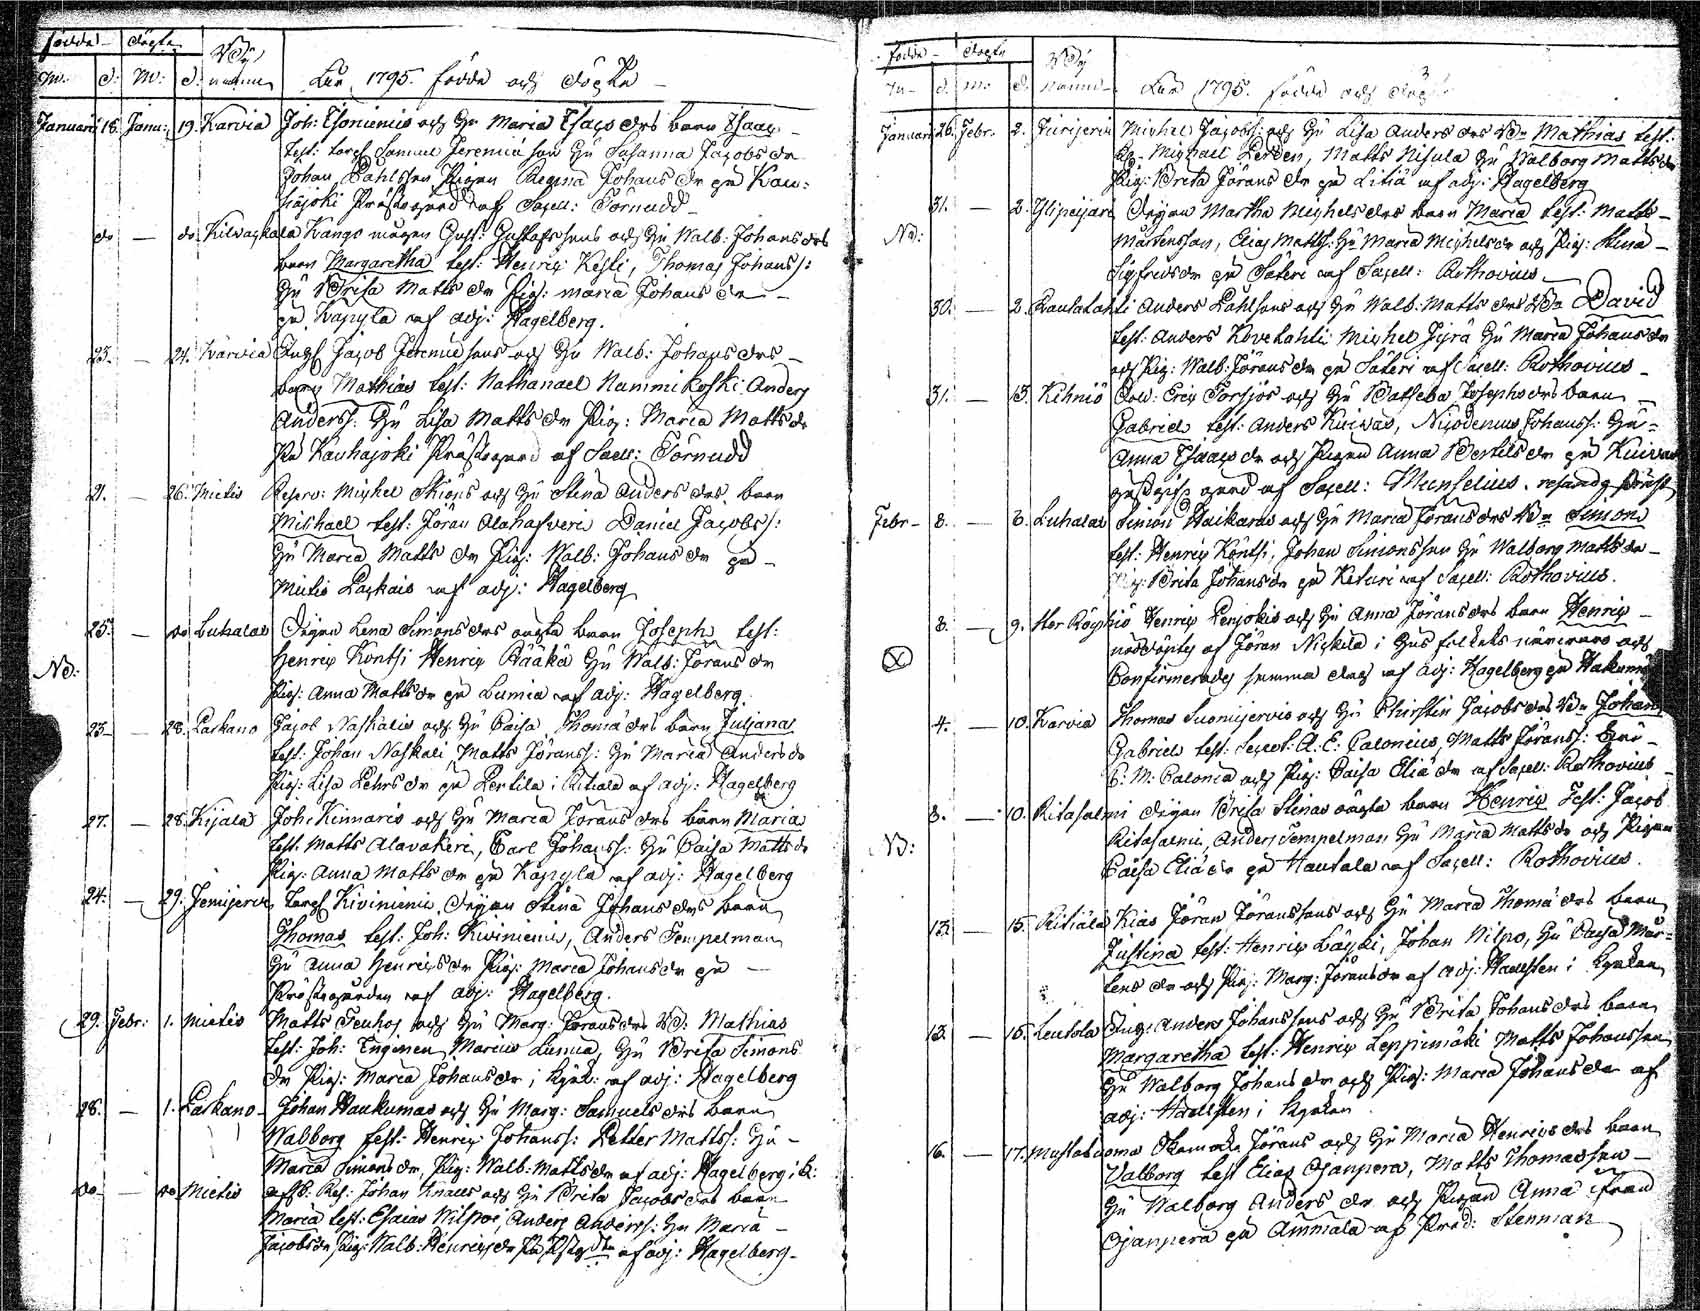 födde döpte Byn
M: d: M: d: namn Åhr 1795. födde och döpte
Januarii 18. Janu: 19. Karvia Joh: Esoniemis och Hu Maria Isacs drs barn Isaac
test: torp: Samuel Jeremiæ son Hu Susanna Jacobs dr
Johan Påhlsson Pigan Regina Johans dr på Kau:
hajoki Prästegård af Sacell: Törnudd
do — do Kilwaskala Kango mågen Gust: Gustafssons och Hu Walb: Johans drs
barn Margaretha test: Henric Kesti, Thomas Johanss:
Hu Brita Matts dr Pig: Maria Johans dr
på Käpylä af adj: Hagelberg.
23. — 24. Karvia Jacob Jeremiæ sons och Hu Walb: Johans drs
barn Mathias test: Nathanael Nummikoski Anders
Anderss: Hu Lisa Matts dr Pig: Maria Matts dr
På Kauhajoki Prästegård af Sacell: Törnudd
21. — 26. Mietis Reserv: Michel Skiöns och Hu Stina Anders drs barn
Michael test: Jöran Alahafveri Daniel Jacobss:
Hu Maria Matts dr Pig: Walb: Johans dr på
Mietis Paskais af adj: Hagelberg
25. — do Luhalax Pigan Lena Simons drs oägta barn Joseph test:
Henric Kontsi Henric Rääkä Hu Walb: Jörans dr
No: Pig: Anna Matts dr på Lumia af adj: Hagelberg.
23. — 28. Parkano Jacob Naskalis och Hu Caisa Thomæ drs barn Juliana
test: Johan Naskali, Matts Jöranss: Hu Maria Anders dr
Pig: Lisa Pehrs dr på Pertila i Ritiala af adj: Hagelberg
27. — 28. Kijala Joh: Kinnaris och Hu Maria Jörans drs barn Maria
test: Matts Alavakeri, Carl Johanss: Hu Caisa Matts dr
Pig: Anna Matts dr på Käpylä af adj: Hagelberg
24. — 29. Jemijervi torp: Kiviniemi, Pigan Stina Johans drs barn
Thomas test: Joh: Kiviniemi, Anders Tempelman
Hu Anna Henrics dr Pig: Maria Johans dr på
Prästegården af adj: Hagelberg.
29. Febr: 1. Mietis Matts Teuhos och Hu Marg: Jörans drs Bn Mathias
test: Joh: Enginen Marcus Lumia, Hu Brita Simons
dr Pig: Maria Johans dr i kyrk: af adj: Hagelberg
28. — 1. Parkano Johan Haukumas och Hu Marg: Samuels drs barn
Walborg test: Henric Johanss: Petter Mattss: Hu
Maria Simons dr, Pig: Walb: Matts dr af adj: Hagelberg i k:
do — do Mietis Johan Knaus och Hu Brita Jacobs drs barn
Maria test: Esaias Nilpoi, Anders Anderss: Hu Maria
Jacobs dr Pig: Walb: Henrics dr af adj: Hagelberg
födde döpte Byn
M. d. M. d. namn Åhr 1795. födde och döpte
Januari 26. Febr. 2. Michel Jacobss: och Hu Lisa Anders drs Bn Mathias test:
Michael Perden, Matts Nisula Hu Walborg Matts dr
Pig: Brita Jörans dr på Litiä af adj: Hagelberg
31. — 2. Ylipeijari Pigan Martha Michels drs barn Maria test: Matts
No: Mårtensson, Elias Mattss: Hu Maria Michels dr och Pig: Stina
Sigfreds dr på Säteri af Sacell: Rothovius
30. — 2. Rautalahti Anders Påhlsons och Hu Walb: Matts drs Bn David
test: Anders Kovelahti Michel Jyrä Hu Maria Johans dr
och Pig: Walb: Jörans dr på Säteri af Sacell: Rothovius
31. — 3. Kihniö Sold: Eric Forsjös och Hu Bathseba Josephs drs barn
Gabriel test: Anders Kuivas, Nicodemus Johanss: Hu
Anna Isaacs dr och Pigan Anna Bertils dr på Kuivas
af Sacell: Munselius.
Febr 8. — 8. Luhalax Simon Haikaras och Hu Maria Jörans drs Bn Simon
test: Henric Köntsi, Johan Simonsson Hu Walborg Matts dr
Pig: Brita Johans dr på Keturi af Sacell: Rothovius.
8. — 9. Henric Penjokis och Hu Anna Jörans drs barn Henric
nöddöpt af Jöran Niskala i Hus folkets närvaro och
Confirmerades samma dag af adj: Hagelberg på Hakuma
4. — 10. Karvia Thomas Suomijervis och Hu Christin Jacobs drs Bn Johan
Gabriel test: A. E. Calonius, Matts Jöranss:
C: M: Calonia och Pig: Caisa Eliæ dr af Sacell: Rothovius
8. — 10. Ritasalmi Pigan Brita Stinas oägta barn Henric Test: Jacob
No: Ritasalmi, Anders Tempelman Hu Maria Matts dr och Pigan
Caisa Eliæ dr på Hautala af Sacell: Rothovius.
12. — 15. Ritiala Kias Jöran Jöranssons och Hu Maria Thomæ drs barn
Justina test: Henric Läiski, Johan Nilpo, Hu Caisa Mår-
tens dr och Pig: Marg: Jörans dr af adj: Haulsten i kyrkan
13. — 15. Leutola Anders Johanssons och Hu Brita Johans drs barn
Margaretha test: Henric Leppimäki Matts Johansson
Hu Walborg Johans dr och Pig: Maria Johans dr af
adj: Haulsten i kyrkan
16. — 17. Mustaluoma Jörans och Hu Maria Henrics drs barn
Valborg test Elias Ojanpera, Matts Thomasson
Hu Walborg Anders dr och Pigan Anna ifrån
Ojanpera på Ammälä af Pred: Stenman